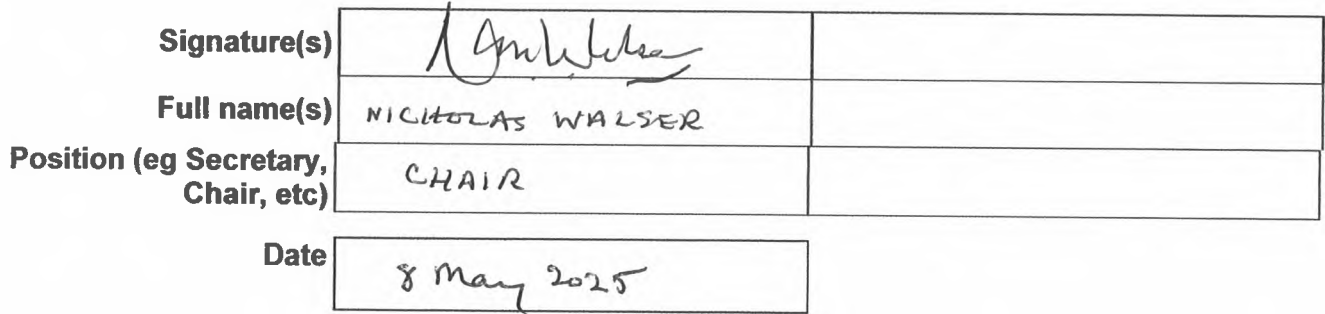 Signature(s)
Full name(s) NICHOLAS WALSER
Position (eg Secretary, CHAIR
Chair, etc)
Date 8 May 2025